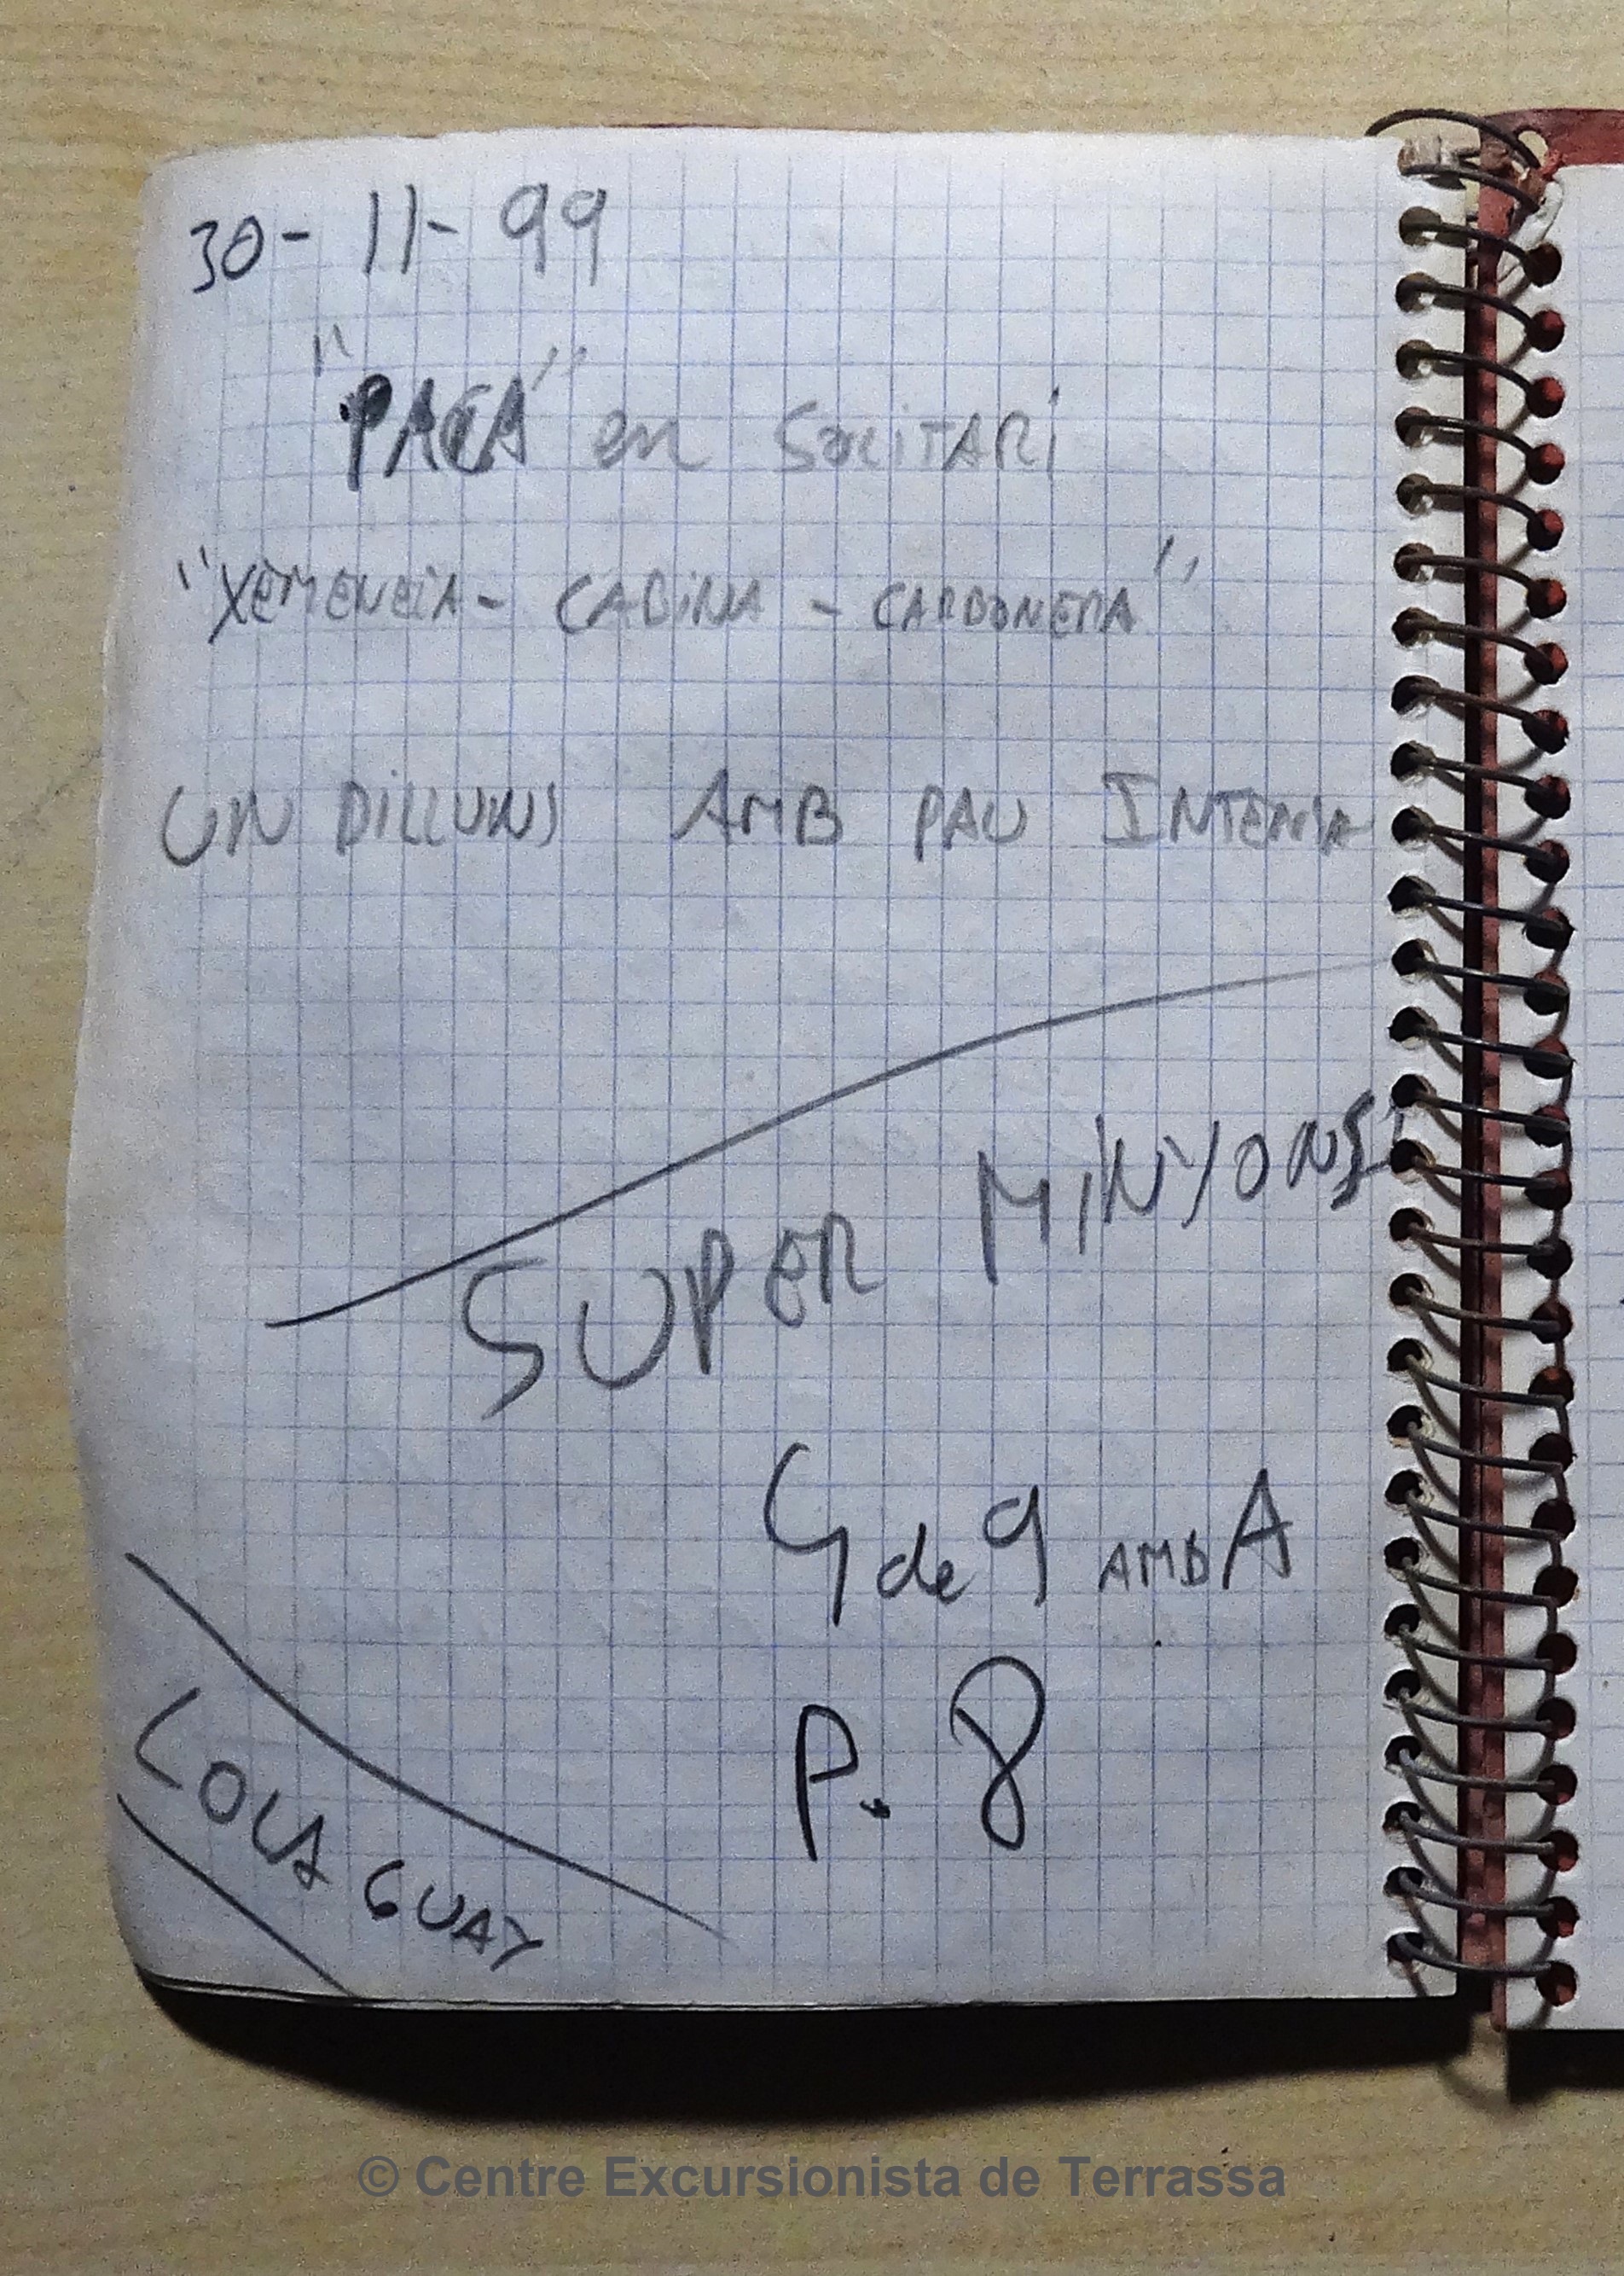 30-11-99
"PACA" en SOLITARI
"XEMENEIA - CABINA - CARBONERA"
UN DILLUNS AMB PAU INTERIA
SUPER MINYONS!
4 de 9 AMB A
P. 8
LOLA GUAY
© Centre Excursionista de Terrassa